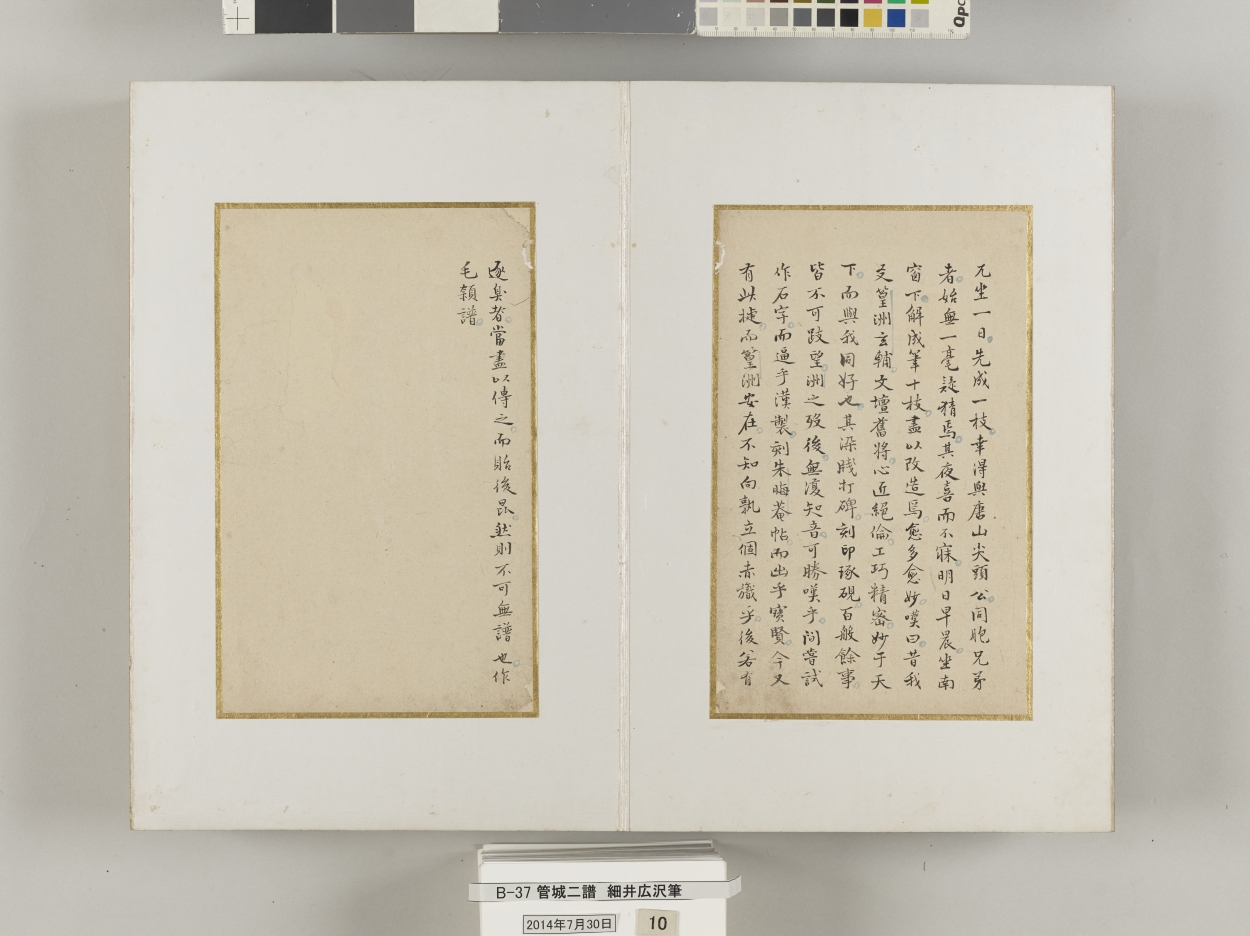 兀坐一日先成一枝幸得與唐山尖頭公同胞兄弟
者始無一毫疑猜焉其夜喜而不寐明日早晨坐南
窗下解成筆十枝盡以改造焉愈多愈妙嘆曰昔我
友篁洲玄輔文壇舊將心匠絕倫工巧精密妙于天
下而與我同好也其染賤打碑刻印琢硯百般餘事
皆不可跂望洲之歿後無復知音可勝嘆乎間嘗試
作石字而逼乎漢製刻朱晦菴帖而出乎寶賢今又
有此捷而篁洲安在不知向孰立個赤幟乎後若有
逐臭者當盡以傳之而貽後昆然則不可無譜也作
毛穎譜
B-37 管城二譜 細井広沢筆
2014年7月30日
10